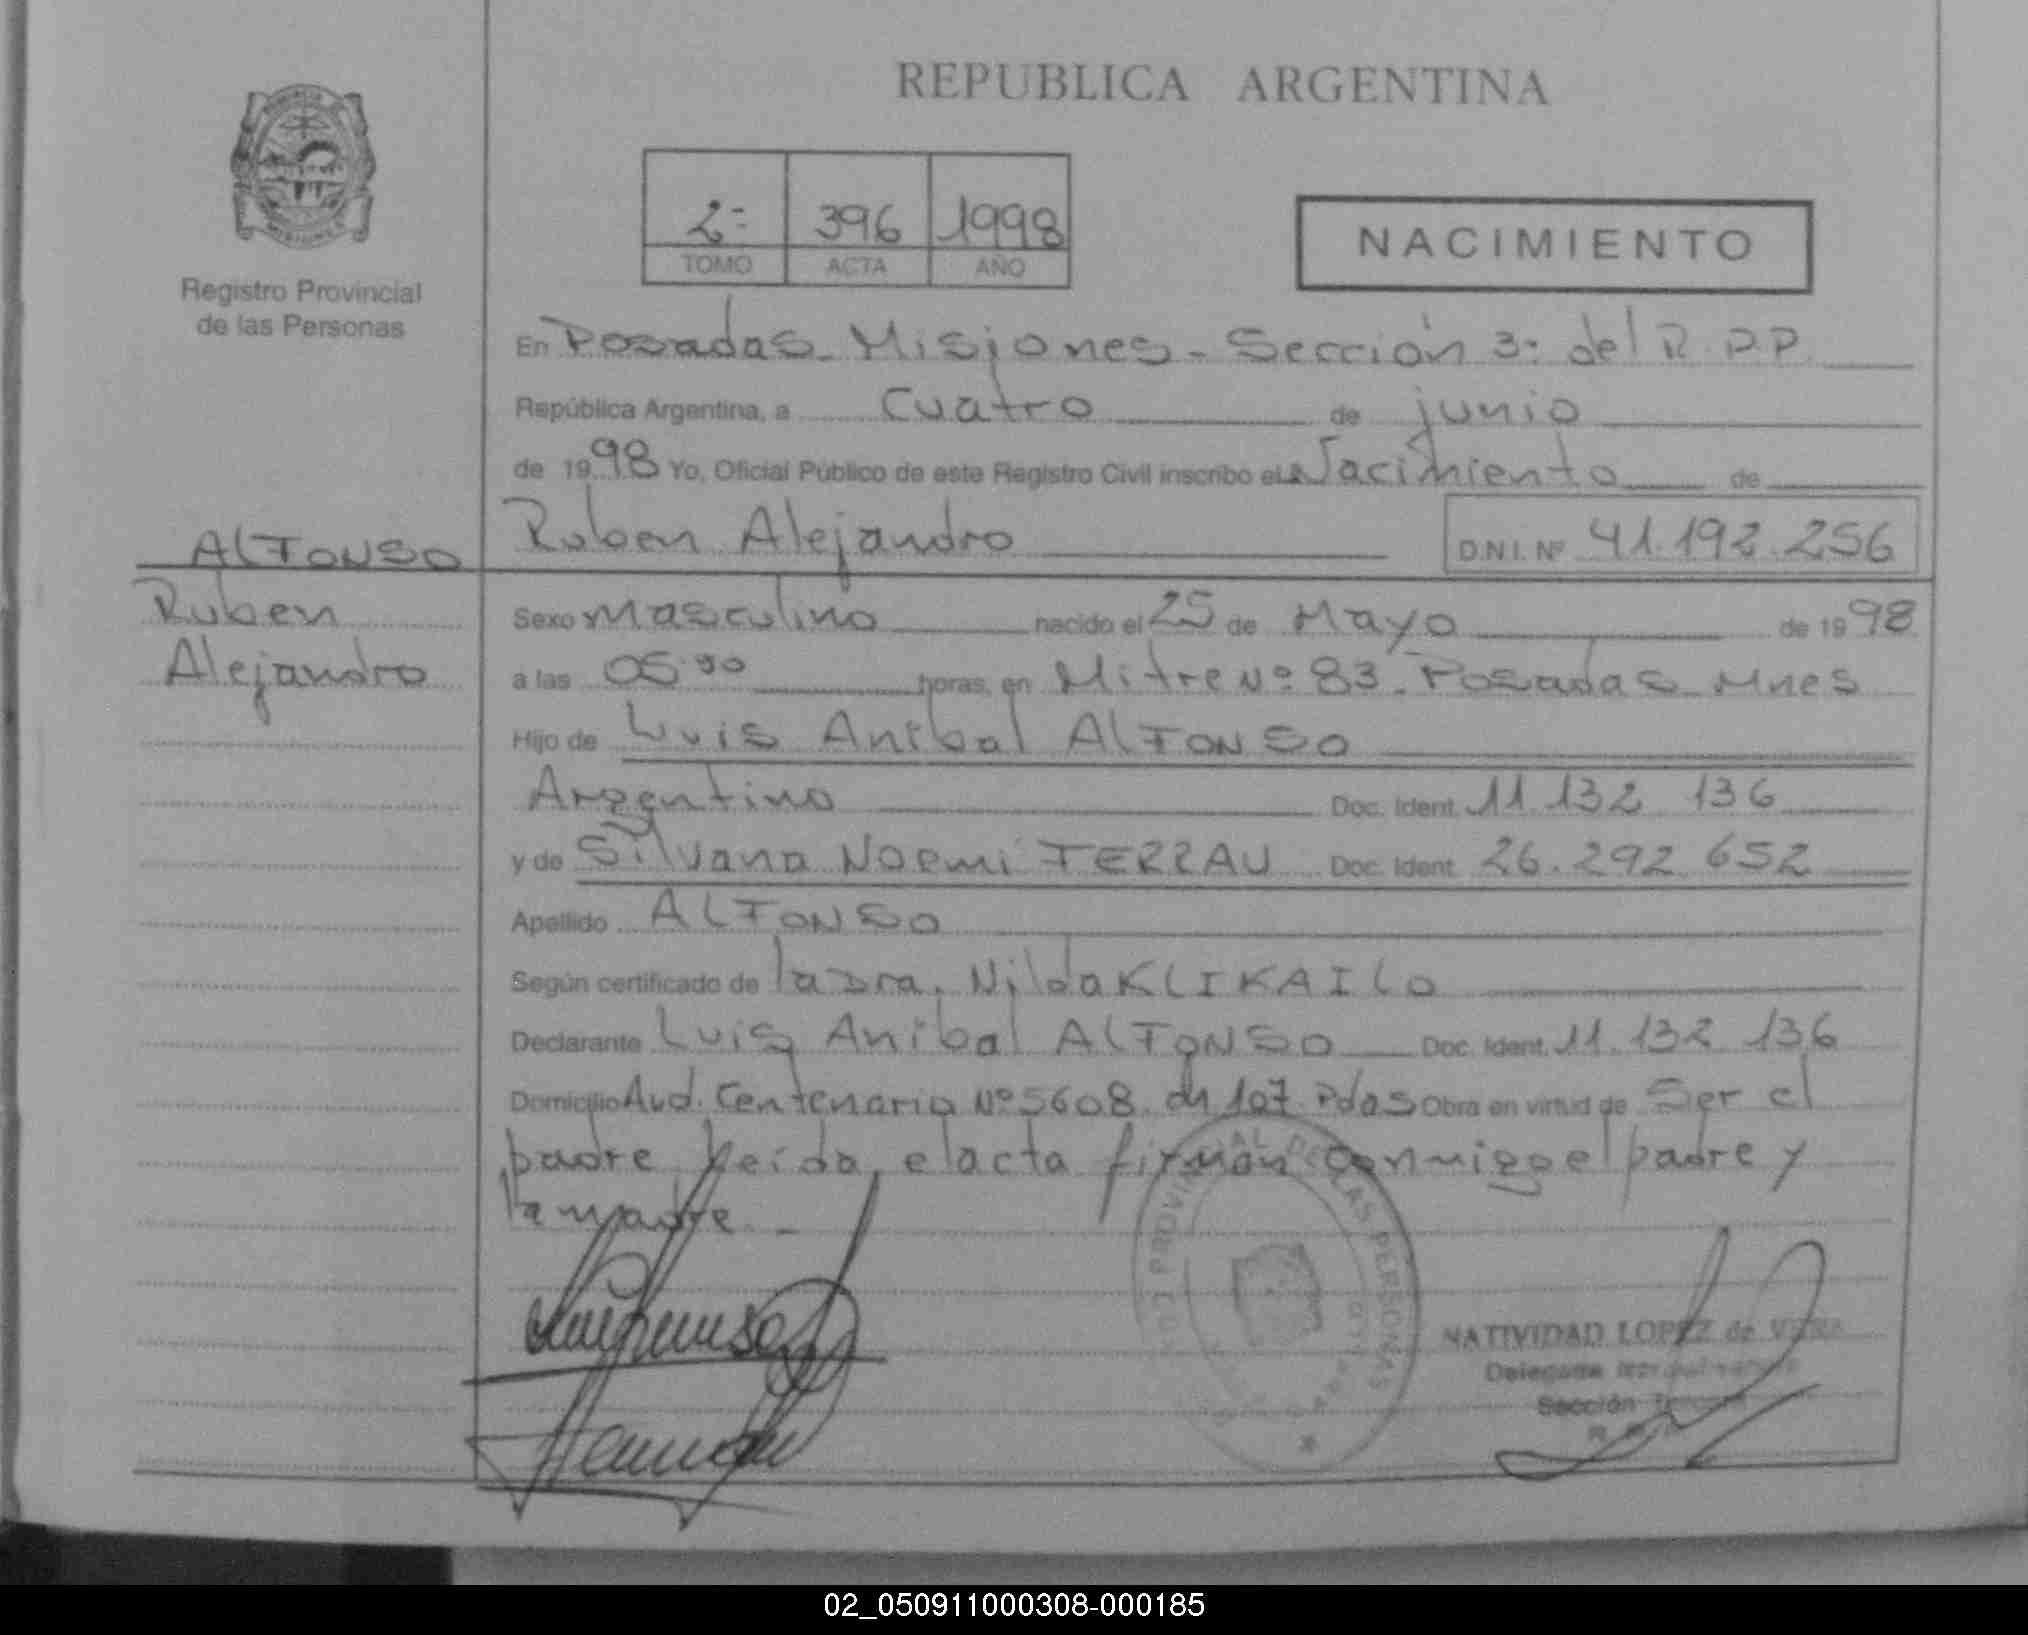 REPUBLICA ARGENTINA
2= 396 1998
TOMO ACTA AÑO
NACIMIENTO
Registro Provincial
de las Personas
En Posadas - Misiones - Sección 3: del R.P.P.
República Argentina, a cuatro de junio
de 1998 Yo, Oficial Público de este Registro Civil inscribo el Nacimiento de
ALFONSO Ruben Alejandro D.N.I. Nº 41.192.256
Ruben
Alejandro
Sexo Masculino nacido el 25 de Mayo de 1998
a las 05:00 horas, en Mitre Nº 83. Posadas Mnes
Hijo de Luis Anibal ALFONSO
Argentino Doc. Ident. 11.132 136
y de Silvana Noemi FERRAU Doc. Ident. 26.292 652
Apellido ALFONSO
Según certificado de la Dra. Nilda KLIKAILO
Declarante Luis Anibal ALFONSO Doc. Ident. 11.132 136
Domicilio Avd. Centenario Nº 5608 ch 107 Pdas Obra en virtud de Ser el
padre leída el acta firman conmigo el padre y
la madre. -
PROVINCIAL DE LAS PERSONAS
NATIVIDAD LOPEZ de VERA
Delegada
Sección Tercera
02_050911000308-000185